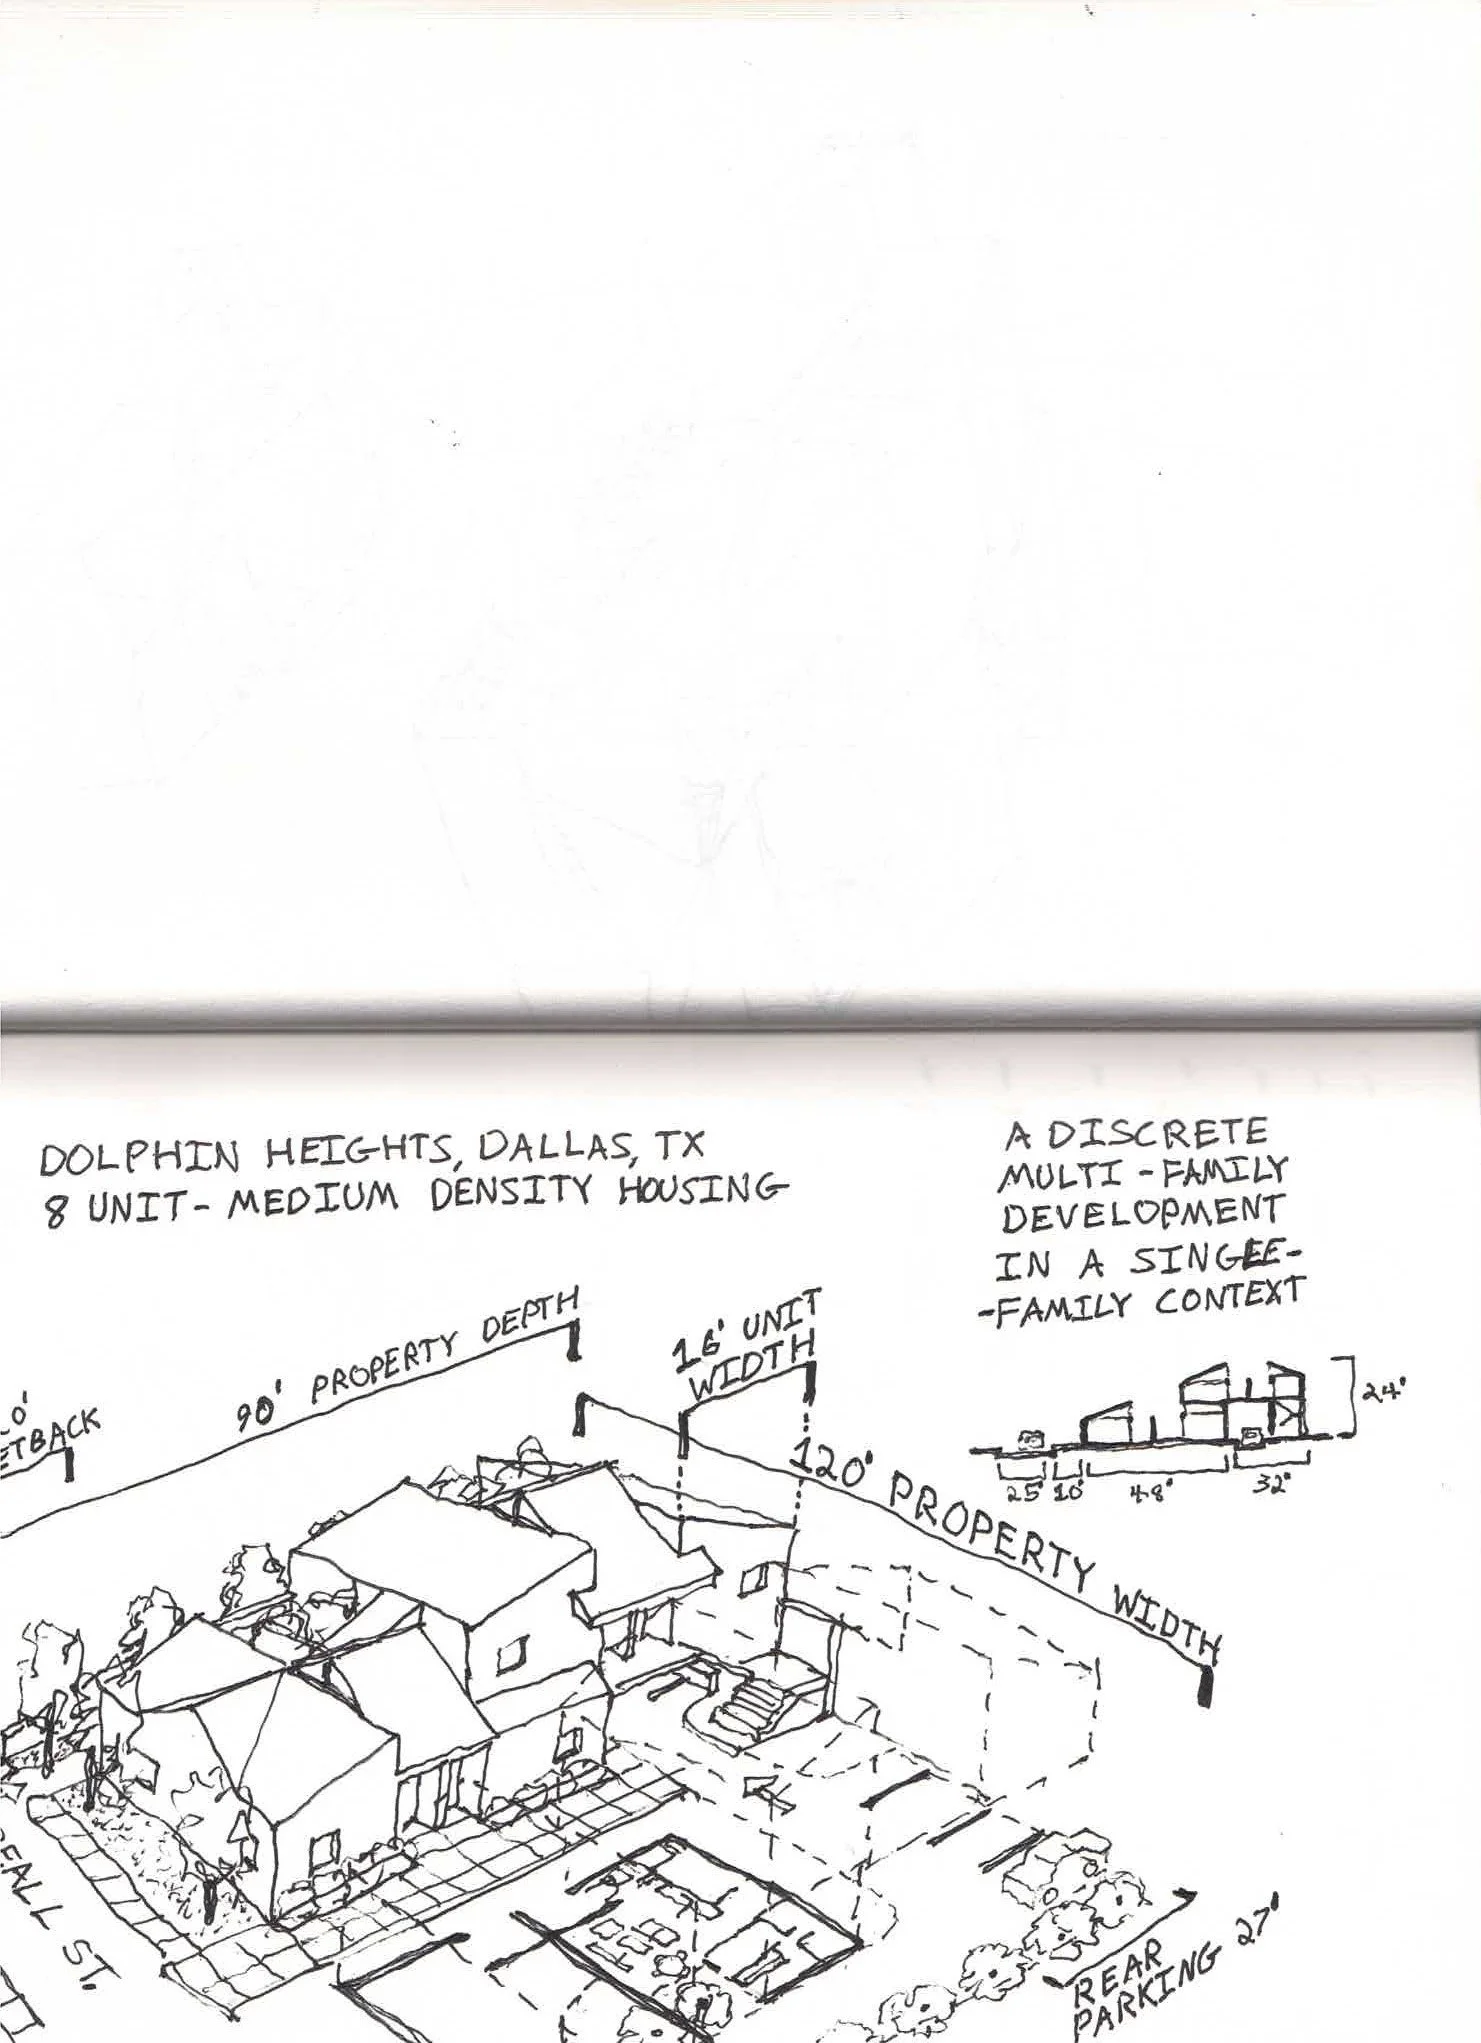 DOLPHIN HEIGHTS, DALLAS, TX
8 UNIT- MEDIUM DENSITY HOUSING
A DISCRETE
MULTI-FAMILY
DEVELOPMENT
IN A SINGLE-
-FAMILY CONTEXT
90' PROPERTY DEPTH
16' UNIT
WIDTH
120' PROPERTY WIDTH
24'
25' 10' 48' 32'
0'
ETBACK
EALL ST.
REAR
PARKING 27'